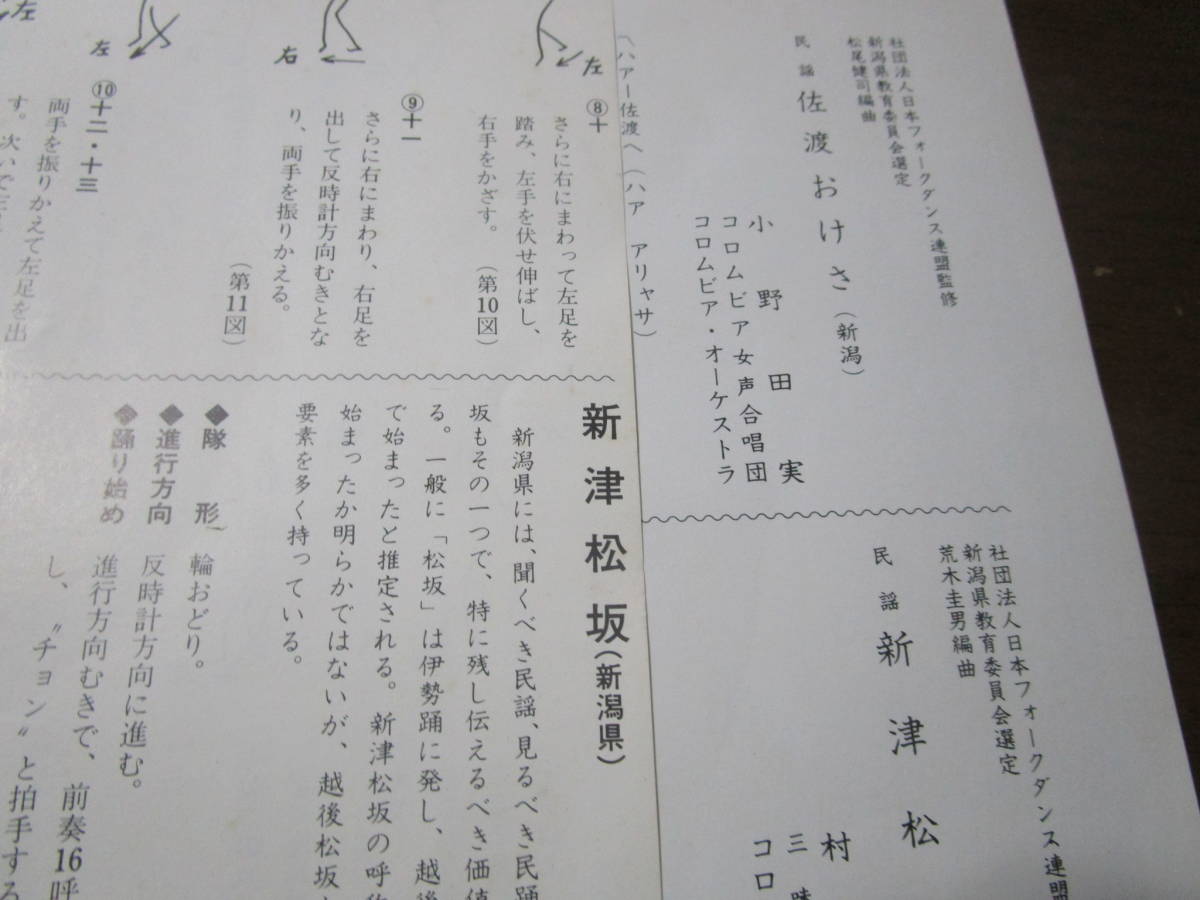 社団法人日本フォークダンス連盟監修
新潟県教育委員会選定
松尾健司編曲
民謡 佐渡おけさ(新潟)
小野田実
コロムビア女声合唱団
コロムビア・オーケストラ
〽ハアー佐渡へ(ハア アリャサ)
社団法人日本フォークダンス連盟
新潟県教育委員会選定
荒木圭男編曲
民謡 新津松
村
三
コロ
左
⑧十
さらに右にまわって左足を
踏み、左手を伏せ伸ばし、
右手をかざす。 (第10図)
右
⑨十一
さらに右にまわり、右足を
出して反時計方向むきとな
り、両手を振りかえる。
(第11図)
左
⑩十二・十三
両手を振りかえて左足を出
す。次いで左足
左
新津松坂(新潟県)
新潟県には、聞くべき民謡、見るべき民踊
坂もその一つで、特に残し伝えるべき価値
る。一般に「松坂」は伊勢踊に発し、越後
で始まったと推定される。新津松坂の呼称
始まったか明らかではないが、越後松坂
要素を多く持っている。
◆隊形 輪おどり。
◆進行方向 反時計方向に進む。
◆踊り始め 進行方向むきで、前奏16呼
し、〝チョン〟と拍手する